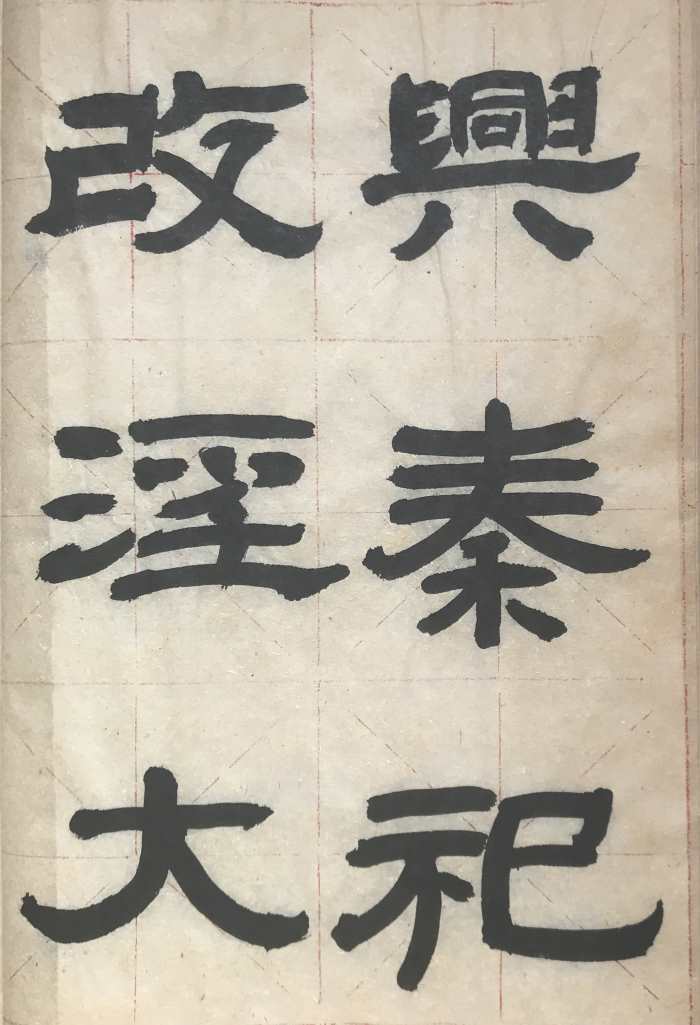 興改
秦淫
祀大